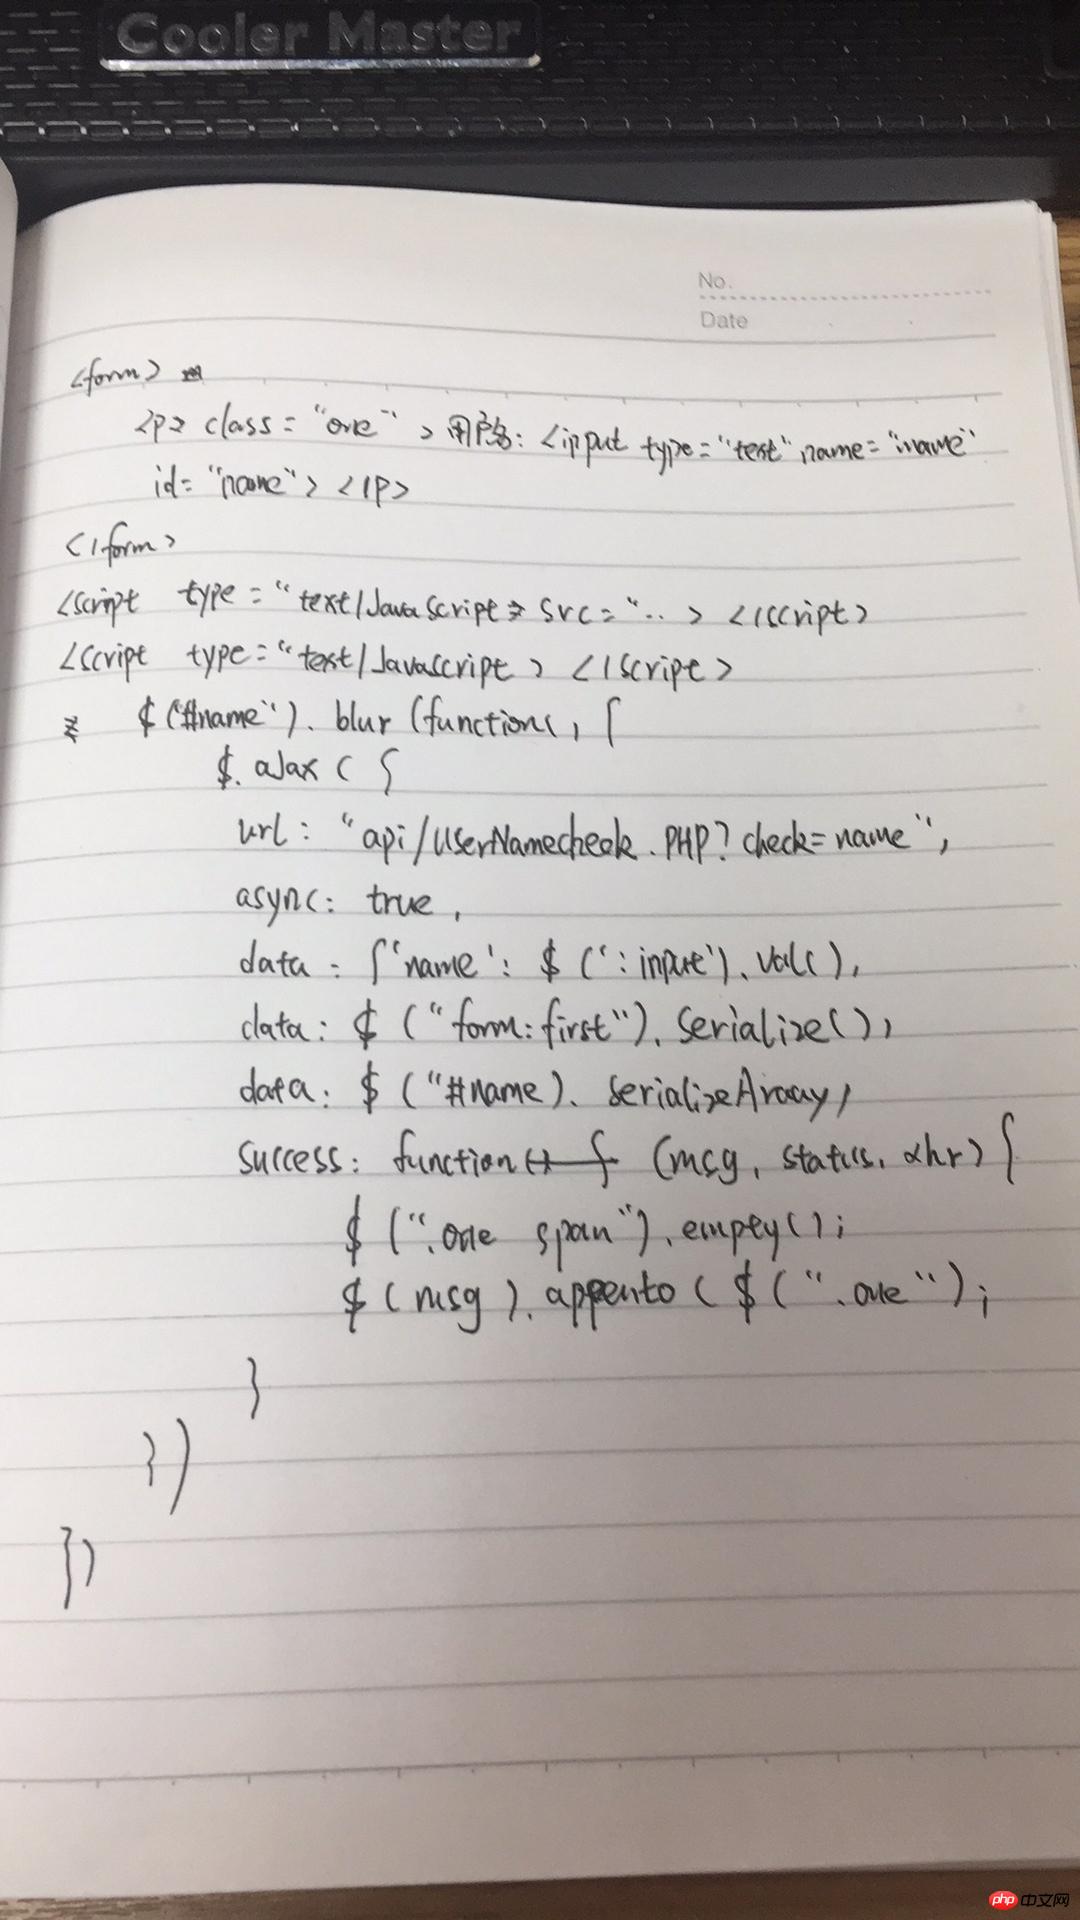 Cooler Master
No.
Date
<form>
<p> class = "one" > 用户名: <input type = "test" name = "name"
id = "name"> </p>
</form>
<script type = "text/JavaScript > src = ".. > </script>
<script type = "text/Javascript > </script>
$ ("#name"). blur (function(, {
$. aJax ( {
url : "api/UserNamecheck.PHP? check=name",
async: true,
data : {'name': $ (':input'). val( ),
data: $ ("form:first"). Serialize( ),
data: $ ("#name). SerializeAraay,
success: function (msg, status, xhr) {
$ (".one span"). empty( );
$ ( msg ). appento ( $ ( ".one ");
}
})
})
php 中文网